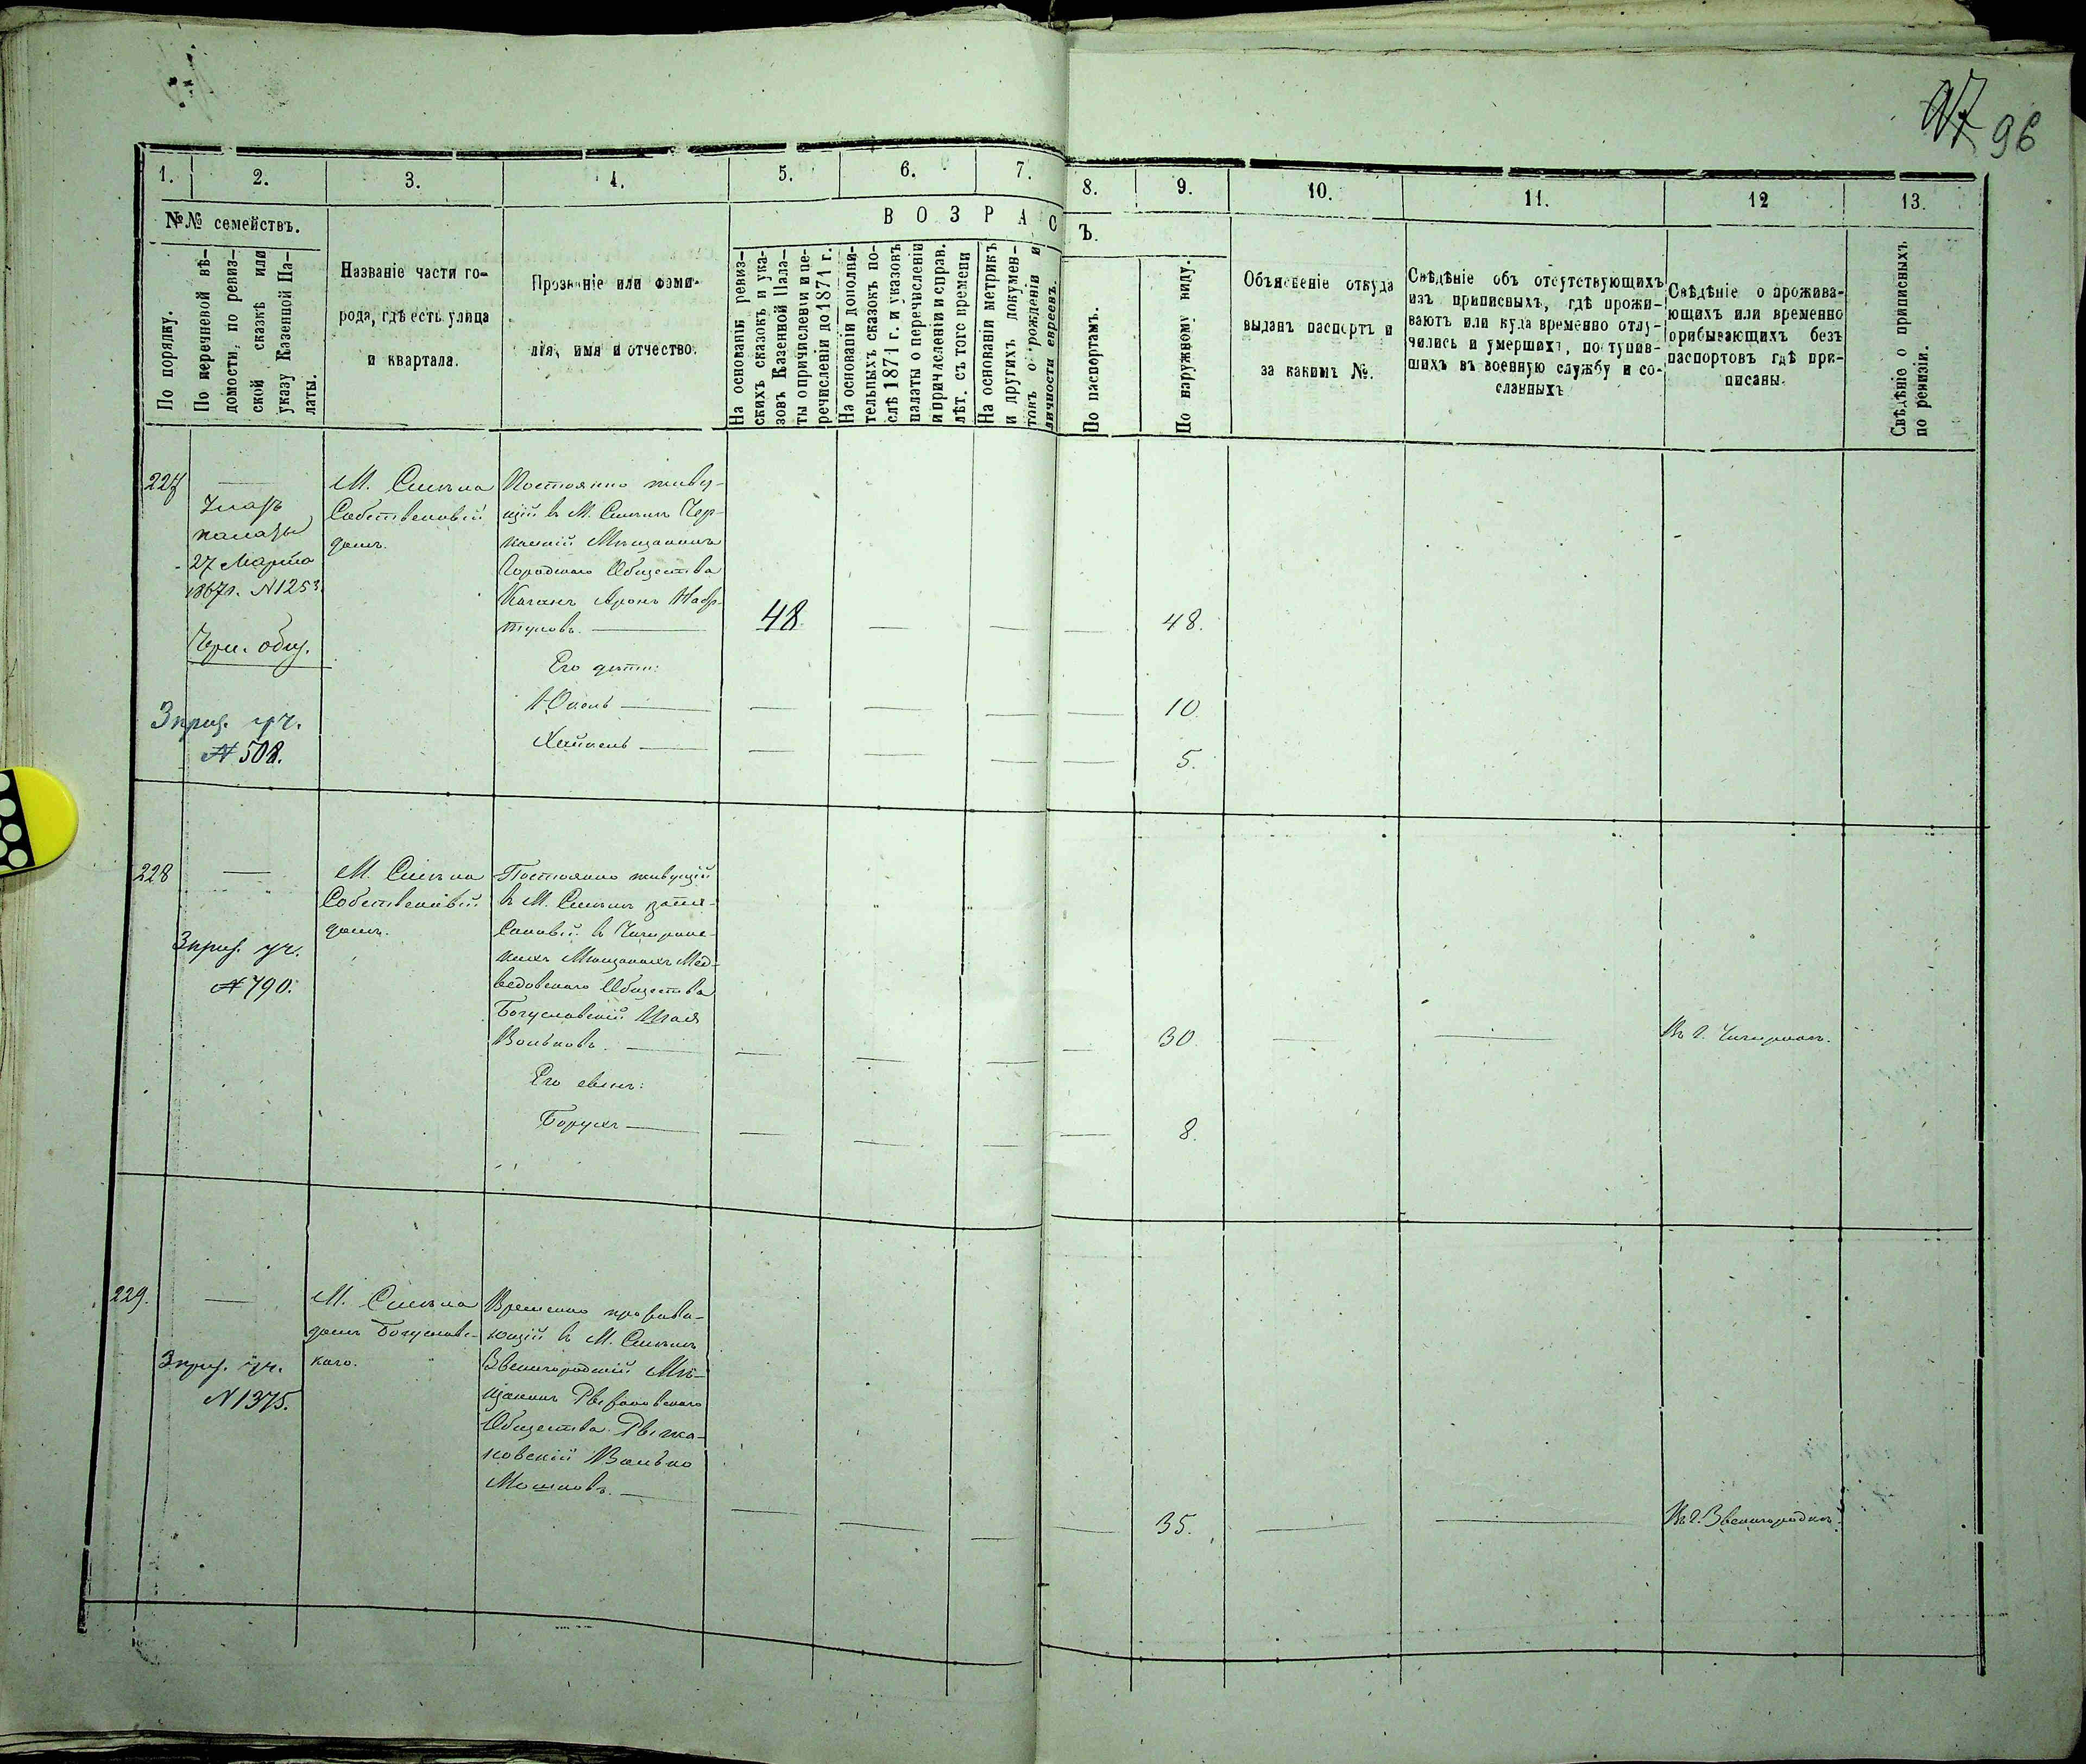 96
1. 2. 3. 4. 5. 6. 7. 8. 9. 10. 11. 12 13.
№№ семействъ.
По порядку.
По перечневой вѣ-
домости, по ревиз-
ской сказкѣ или
указу Казенной Па-
латы.
Названіе части го-
рода, гдѣ есть улица
и квартала.
Прозваніе или фами-
лія, имя и отчество.
ВОЗРАС
Ъ.
На основаніи ревиз-
скихъ сказокъ и ука-
зовъ Казенной Пала-
ты о причисленіи и пе-
речисленіи до 1871 г.
На основаніи дополни-
тельныхъ сказокъ по-
слѣ 1871 г. и указовъ
палаты о перечисленіи
и причисленіи и справ.
лѣт. съ того времени
На основаніи метрикъ
и другихъ докумен-
товъ о рожденіи и
личности евреевъ.
По паспортамъ.
По наружному виду.
Объясненіе откуда
выданъ паспортъ и
за какимъ №.
Свѣдѣніе объ отсутствующихъ
изъ приписныхъ, гдѣ прожи-
ваютъ или куда временно отлу-
чились и умершихъ, поступив-
шихъ въ военную службу и со-
сланныхъ
Свѣдѣніе о прожива-
ющихъ или временно
прибывающихъ безъ
паспортовъ гдѣ при-
писаны.
Свѣдѣніе о приписныхъ
по ревизіи.
227
Указъ
палаты
27 Марта
1867 г. N 1253
Черк. общ.
3 приз. уч.
N 508.
М. Смѣла
Собственный
домъ.
Постоянно живу-
щій в М. Смѣлѣ Чер-
каскій Мѣщанинъ
Городского Общества
Каганъ Аронъ
48 48.
Его дѣти:
10.
5.
228
3 приз. уч.
N 790.
М. Смѣла
Собственный
домъ.
Постоянно живущій
в М. Смѣлѣ запи-
санный в Чигиринс-
кихъ Мѣщанахъ Мед-
ведовскаго Общества
Богуславскій
Вольковъ. 30. Въ г. Чигиринѣ.
Его сынъ:
Борухъ 8.
229.
3 приз. уч.
N 1375.
М. Смѣла
домъ Богуславс-
каго.
Временно прожива-
ющій в М. Смѣлѣ
Звенигородскій Мѣ-
щанинъ
Общества
Волько
Мошковъ. 35. Въ г. Звенигородкѣ.